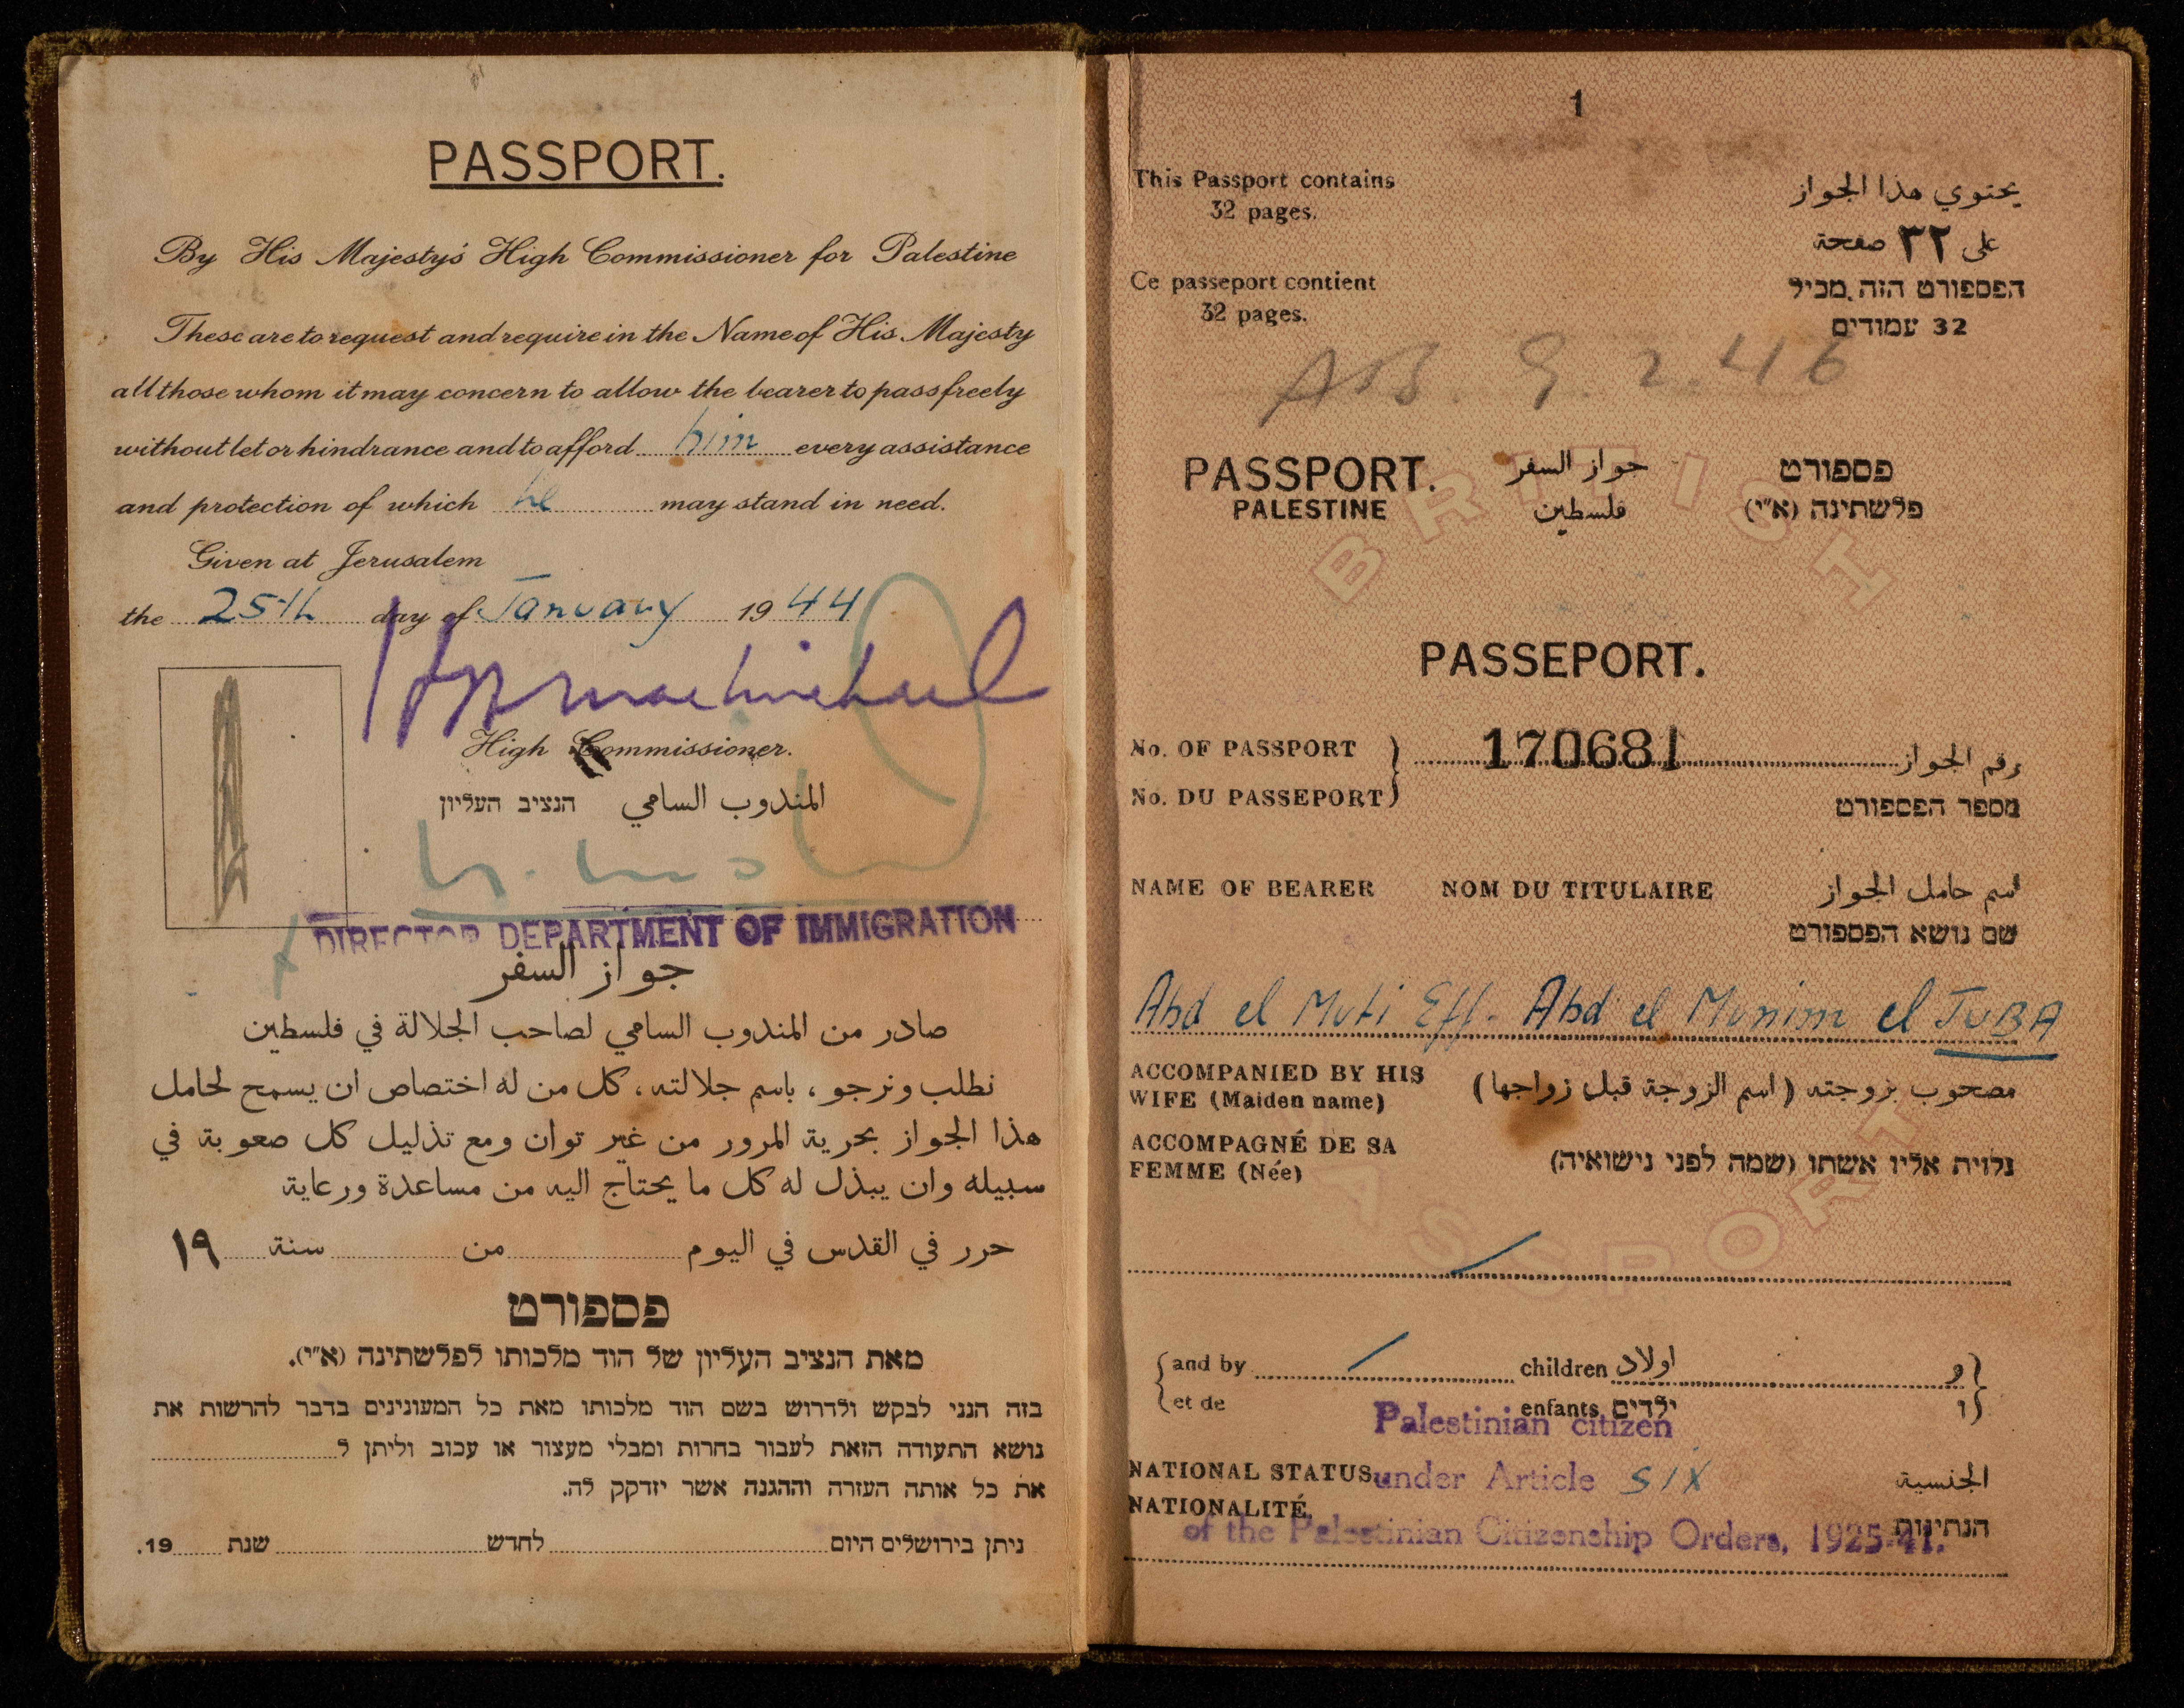 PASSPORT.
By His Majesty's High Commissioner for Palestine
These are to request and require in the Name of His Majesty
all those whom it may concern to allow the bearer to pass freely
without let or hindrance and to afford him every assistance
and protection of which he may stand in need.
Given at Jerusalem
the 25th day of January 1944
High Commissioner.
المندوب السامي הנציב העליון
DIRECTOR DEPARTMENT OF IMMIGRATION
جواز السفر
صادر من المندوب السامي لصاحب الجلالة في فلسطين
نطلب ونرجو ، باسم جلالته ، كل من له اختصاص ان يسمح لحامل
هذا الجواز بحرية المرور من غير توان ومع تذليل كل صعوبة في
سبيله وان يبذل له كل ما يحتاج اليه من مساعدة ورعاية
حرر في القدس في اليوم من سنة ١٩
פספורט
מאת הנציב העליון של הוד מלכותו לפלשתינה (א״י).
בזה הנני לבקש ולדרוש בשם הוד מלכותו מאת כל המעונינים בדבר להרשות את
נושא התעודה הזאת לעבור בחרות ומבלי מעצור או עכוב וליתן ל
את כל אותה העזרה וההגנה אשר יזדקק לה.
ניתן בירושלים היום לחדש שנת 19.
1
This Passport contains
32 pages.
يحتوي هذا الجواز
على ٣٢ صفحة
Ce passeport contient
32 pages.
הפספורט הזה מכיל
32 עמודים
9.2.46
PASSPORT. جواز السفر פספורט
PALESTINE فلسطين פלשתינה (א״י)
BRITISH
PASSEPORT.
No. OF PASSPORT 170681 رقم الجواز
No. DU PASSEPORT מספר הפספורט
NAME OF BEARER NOM DU TITULAIRE اسم حامل الجواز
שם נושא הפספורט
Abd el Muti Eff. Abd el Munim el JUBA
ACCOMPANIED BY HIS
WIFE (Maiden name)
مصحوب بزوجته (اسم الزوجة قبل زواجها)
ACCOMPAGNÉ DE SA
FEMME (Née)
נלוית אליו אשתו (שמה לפני נישואיה)
PASSPORT
and by children اولاد و
et de enfants ילדים ו
Palestinian citizen
NATIONAL STATUS under Article SIX الجنسية
NATIONALITÉ הנתינות
of the Palestinian Citizenship Orders, 1925-41.